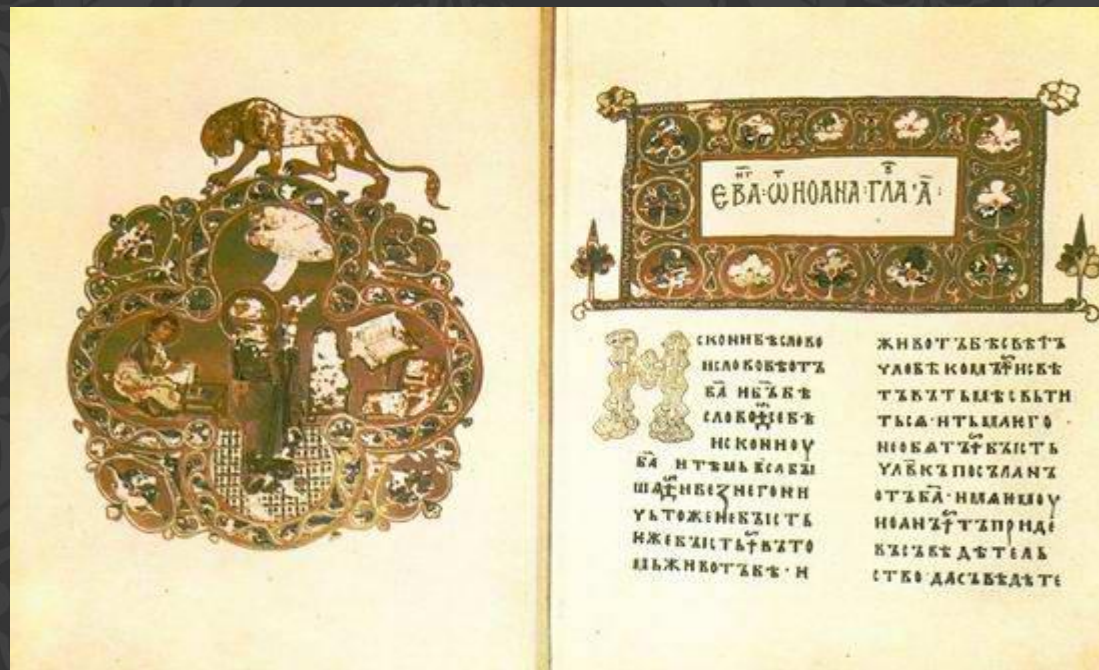 ЕВА·Ѿ ИОАНА·ГЛА·А҃:
ИСКОНИБѢСЛОВО
ИСЛОВОБѢОТЪ
Б҃А ИБ҃ЪБѢ
СЛОВО СЕБѢ
ИСКОНИОУ
Б҃А ИТѢМЬВЬСАБЫ
ША ИБЕЗНЕГОНИ
ЧЬТОЖЕНЕБЪІСТЬ
ИЖЕБЪІСТЬ ВЪТО
МЬЖИВОТЪБѢ·И
ЖИВОТЪБѢСВѢТЪ
ЧЛОВѢКОМЪ ИСВѢ
ТЪВЪТЬМѢСВЬТИ
ТЬСѦ·ИТЬМАѤГО
НЕОБѦТЪ БЪІСТЬ
ЧЛ҃ВКЪПОСЪЛАНЪ
ОТЪБ҃А·ИМѦѤМОУ
ИОАНЪ ТЪПРИДЕ
ВЪСЪВѢДѢТЕЛЬ
СТВО·ДАСЪВѢДѢТЕ